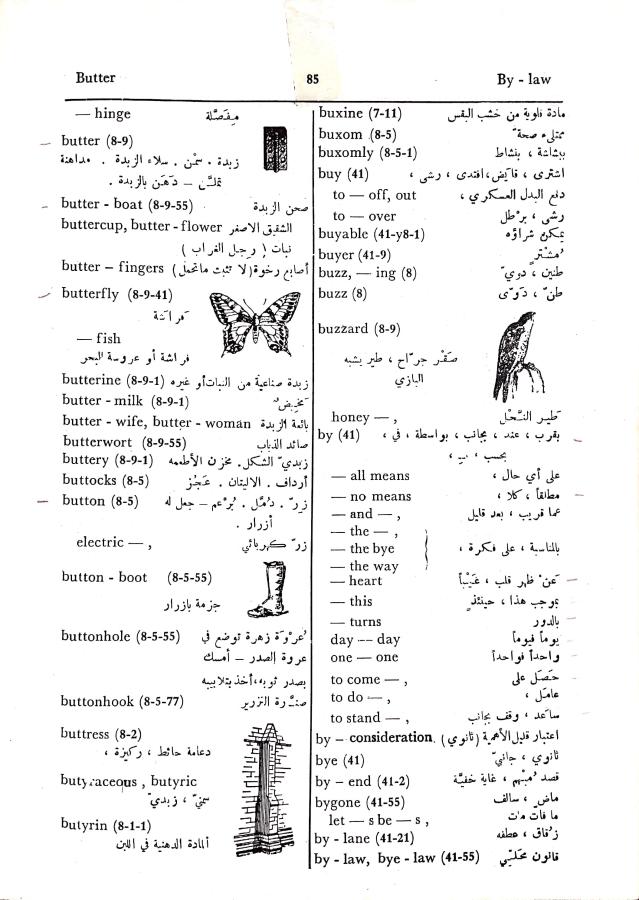 Butter 85 By - law
— hinge مِفصَّلة
butter (8-9)
زبدة . سمْن . سلاء الزبدة . مداهنة
تملّق – دهَن بالزبدة .
butter - boat (8-9-55) صحن الزبدة
buttercup, butter - flower الشقيق الاصفر
نبات ( رجل الغراب )
butter – fingers أصابع رخوة (لا تثبت ماتحمل)
butterfly (8-9-41)
فراشة
— fish
فراشة أو عروسة البحر
butterine (8-9-1) زبدة صناعية من النبات أو غيره
butter - milk (8-9-1) مخيض
butter - wife, butter - woman بائعة الزبدة
butterwort (8-9-55) صائد الذباب
buttery (8-9-1) زبديّ الشكل. مخزن الأطعمه
buttocks (8-5) أرداف . الاليتان . عَجُز
button (8-5) زرّ . دُمّل . بُرْعم – جعل له
أزرار .
electric — , زرّ كهربائي
button - boot (8-5-55)
جزمة بازرار
buttonhole (8-5-55) عُروَة زهرة توضع في
عروة الصدر – أمسك
بصدر ثوبه، أخذ بتلابيبه
buttonhook (8-5-77) صنّارة التزرير
buttress (8-2)
دعامة حائط ، ركيزة ،
butyraceous , butyric
سمنيّ ، زبديّ
butyrin (8-1-1)
المادة الدهنية في اللبن
buxine (7-11) مادة قلوية من خشب البقس
buxom (8-5) ممتلىء صحة
buxomly (8-5-1) ببشاشة ، بنشاط
buy (41) اشترى ، قايض، افتدى ، رشى ،
to — off, out دفع البدل العسكري ،
to — over رشى ، برْطل
buyable (41-y8-1) يمكن شراؤه
buyer (41-9) مُشترٍ
buzz, — ing (8) طنين ، دويّ
buzz (8) طنّ ، دَوّى
buzzard (8-9)
صقْر جرّاح ، طير يشبه
البازي
honey — , طير النَّحْل
by (41) بقرب ، عند ، بجانب ، بواسطة ، في ،
بحسب ، بـ ،
— all means على أي حال ،
— no means مطلقاً ، كلا ،
— and — , عما قريب ، بعد قليل
— the — ,
— the bye بالمناسبة ، على فكرة ،
— the way
— heart عنْ ظهر قلب ، غَيْباً
— this بموجب هذا ، حينئذٍ
— turns بالدور
day — day يوماً فيوماً
one — one واحداً فواحداً
to come — , حَصَل على
to do — , عامَل ،
to stand — , ساعد ، وقف بجانب
by – consideration. اعتبار قليل الأهمية (ثانوي)
bye (41) ثانوي ، جانبيّ
by – end (41-2) قصد مُبْهم ، غاية خفيّة
bygone (41-55) ماضٍ ، سالف
let — s be — s , ما فات مات
by - lane (41-21) زُقاق ، عطفه
by - law, bye - law (41-55) قانون محلّي